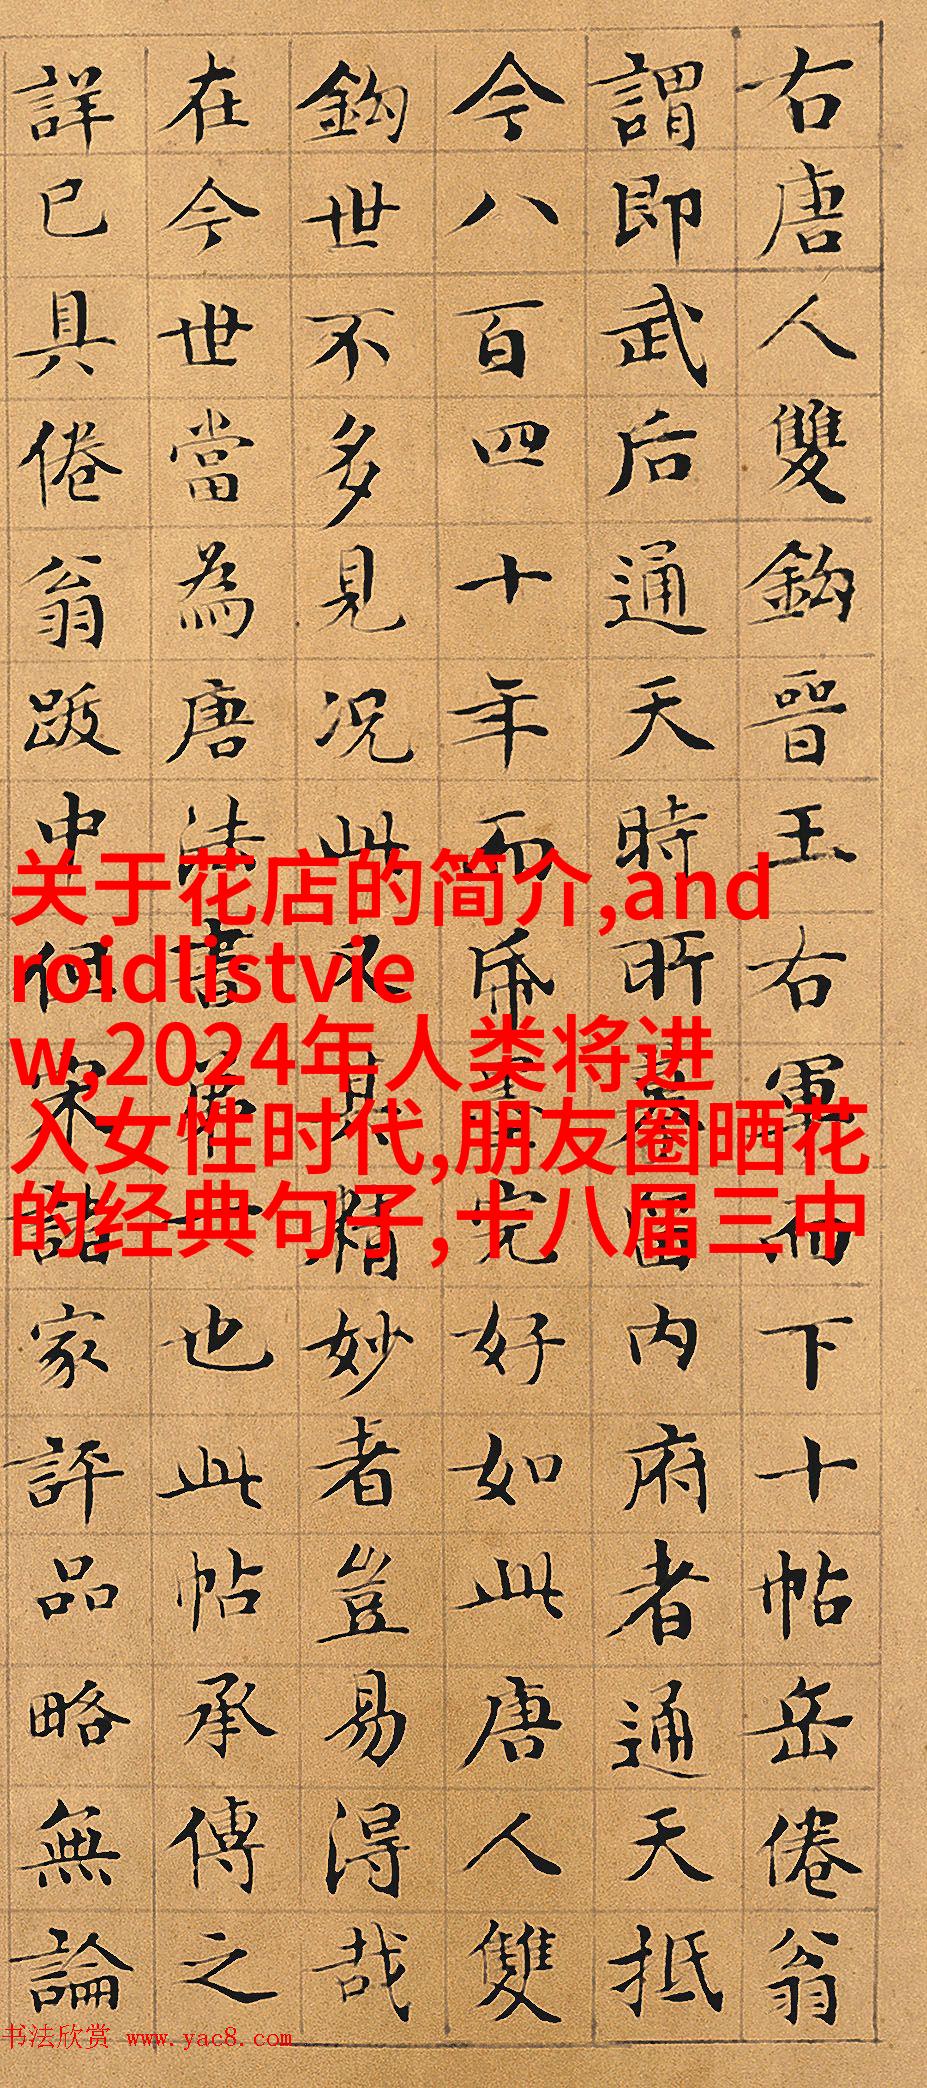 右唐人雙鈎晉王右軍而下十帖岳倦翁
謂即武后通天時所摹留内府者通天抵
今八百四十年而帋墨完好如此唐人雙
鈎世不多見况此又其精妙者豈易得哉
在今世當為唐法書第一也此帖承傳之
詳已具倦翁跋中但宋諸家評品略無論
关于花店的简介,and
roidlistvie
w,2024年人类将进
入女性时代,朋友圈晒花
的经典句子,十八届三中
书法欣赏 www.yac8.com